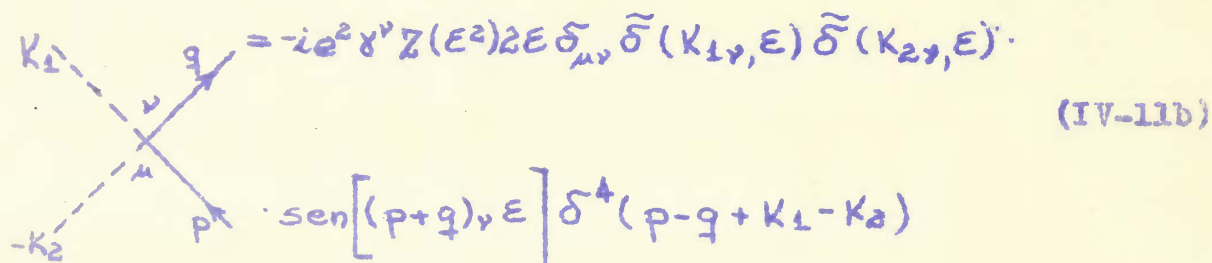 K₁ q = -ie² γ^ν Z(ε²) 2ε δ_μν δ̃(K₁ν, ε) δ̃(K₂ν, ε) ·
ν
(IV-11b)
μ
-K₂ p · sen[(p+q)_ν ε] δ⁴(p-q+K₁-K₂)